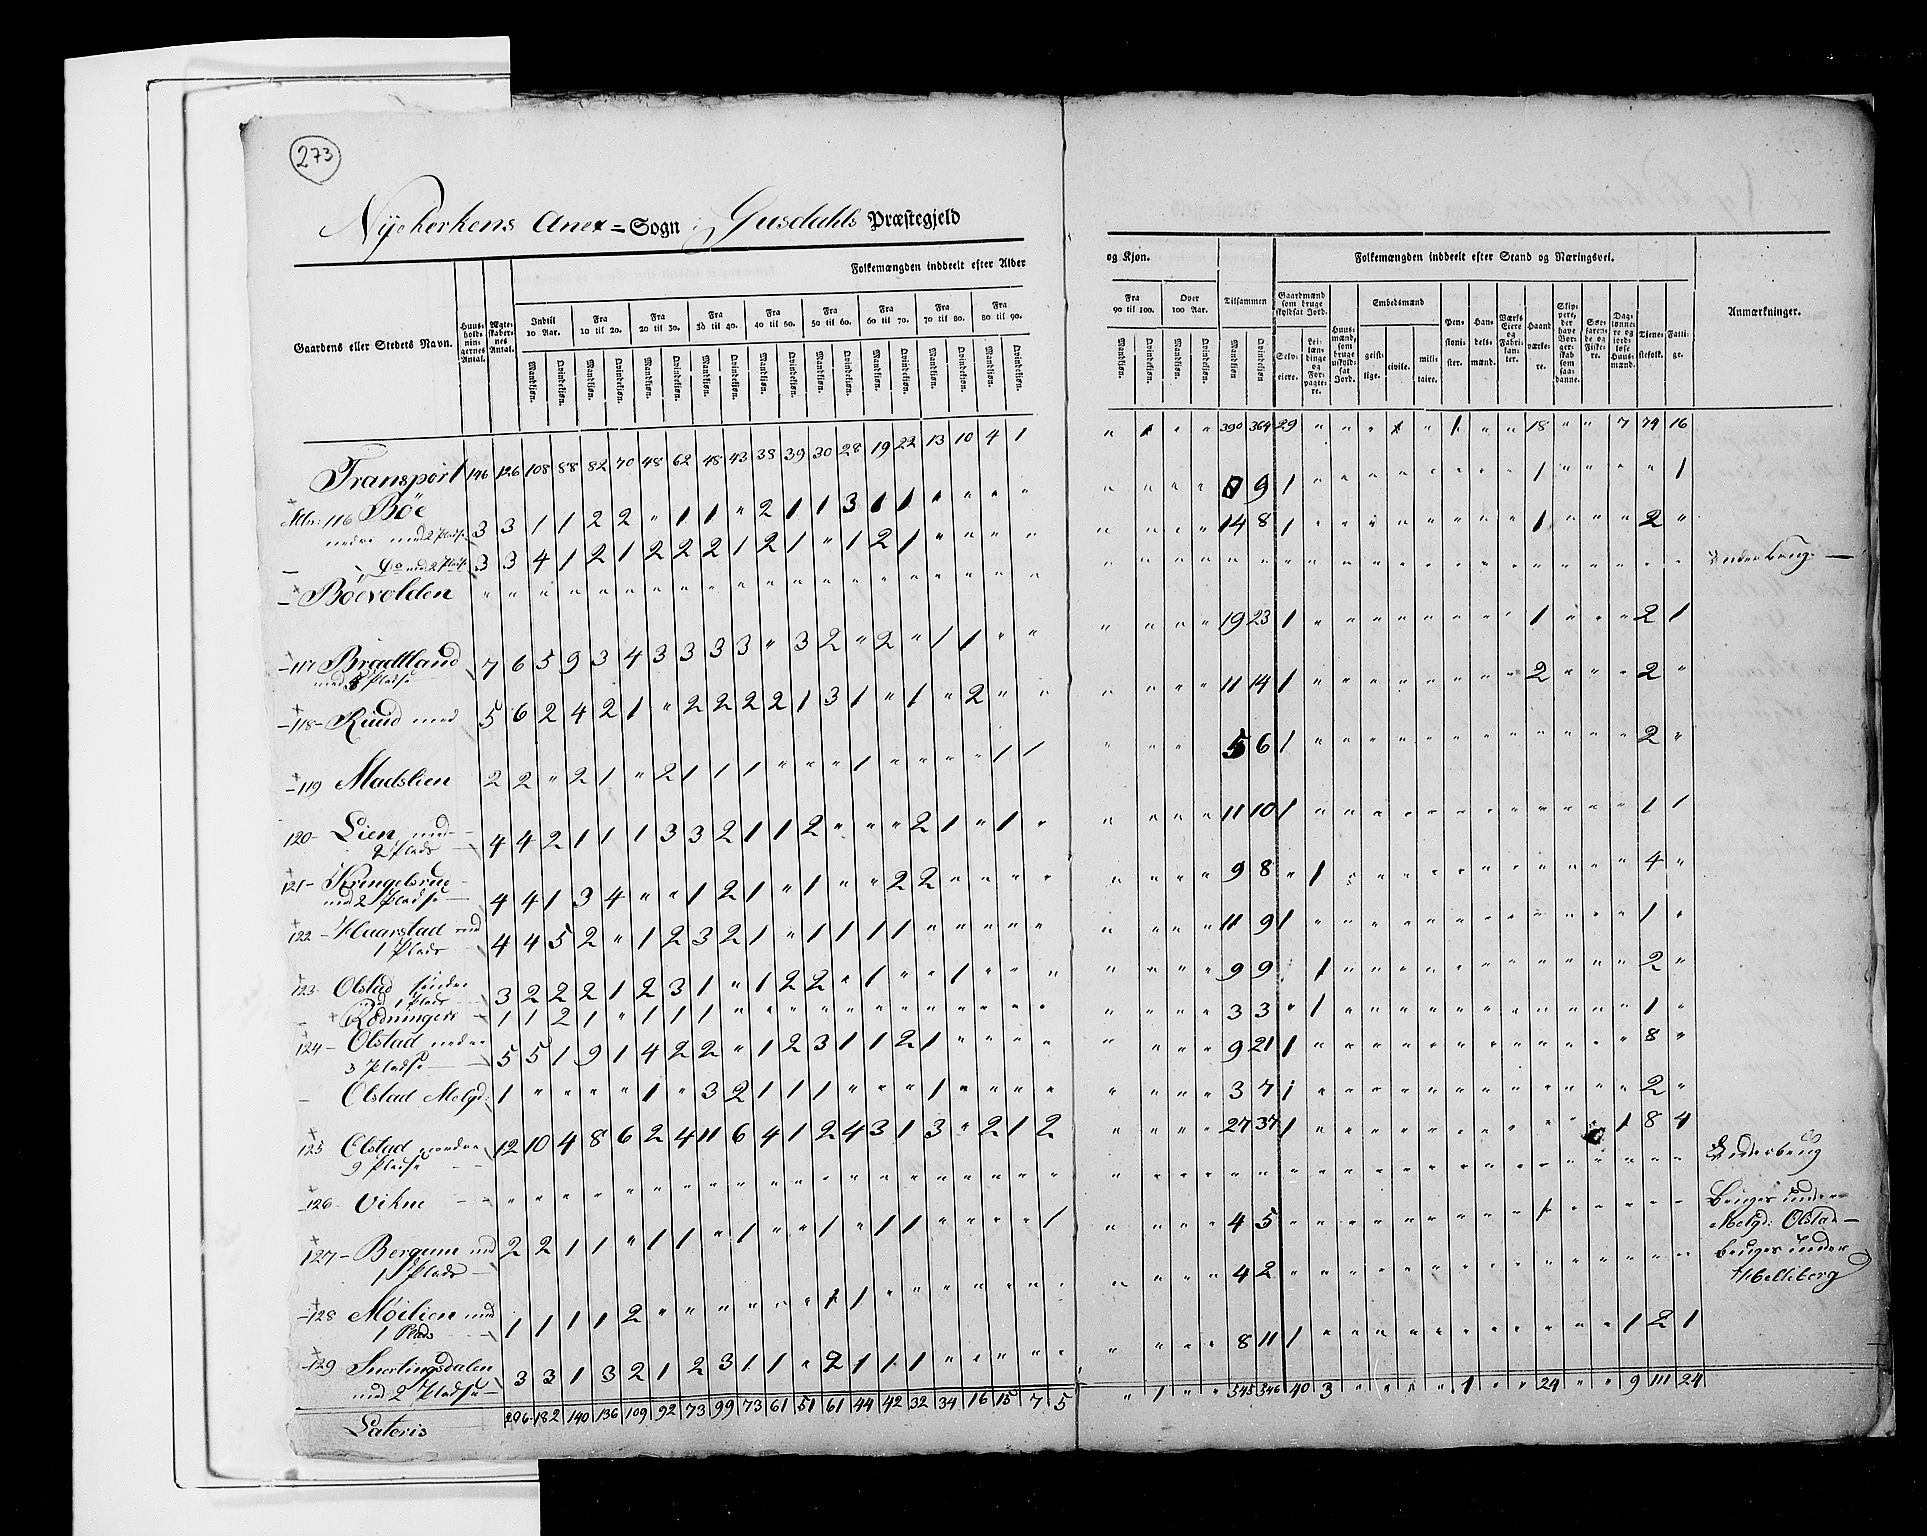 273
Nÿekerkens Anex=Sogn i Gusdahls Præstegjeld
Folkemængden inddeelt efter Alder
og Kjøn.
Folkemængden inddeelt efter Stand og Næringsvei.
Gaardens eller Stedets Navn.
Huus-holdnin-gernes Antal.
Ægte-skaber-nes Antal.
Indtil 10 Aar.
Fra 10 til 20.
Fra 20 til 30.
Fra 30 til 40.
Fra 40 til 50.
Fra 50 til 60.
Fra 60 til 70.
Fra 70 til 80.
Fra 80 til 90.
Fra 90 til 100.
Over 100 Aar.
Tilsammen
Gaardmænd som bruge skyldsat Jord.
Embedsmænd
Anmærkninger.
Mandkjøn. Qvindekjøn. Mandkjøn. Qvindekjøn. Mandkjøn. Qvindekjøn. Mandkjøn. Qvindekjøn. Mandkjøn. Qvindekjøn. Mandkjøn. Qvindekjøn. Mandkjøn. Qvindekjøn. Mandkjøn. Qvindekjøn. Mandkjøn. Qvindekjøn.
Mandkjøn. Qvindekjøn. Mandkjøn. Qvindekjøn. Mandkjøn Qvindekjøn
Selv-eiere.
Lei-læn-dinge og For-pagte-re.
Huus-mænd, som bruge uskyld-sat Jord.
geist-lige.
civile.
mili-taire.
Pen-sioni-ster.
Han-dels-mænd.
Værks Eiere og Fabri-kan-ter.
Haand værke-re.
Skip-pere, der have Bor-ger-skab som saa-danne.
Søe-farende og Fiske-re.
Dag-lønne-re og jord-løse Huus-mænd.
Tiene-stefolk.
Fatti-ge.
Transport 146 126 108 88 82 70 48 62 48 43 38 39 30 28 19 22 13 10 4 1 " 1 " " 390 364 29 " " " 1 " 1 " " 18 " " 7 74 16
Mn: 116 Böe
nedre med 2 Pladse 3 3 1 1 2 2 " 1 1 " 2 1 1 3 1 1 " " " " " " " " 9 1 " " " " " " " " 1 " " " " 1
do med 2 Plads 3 3 4 1 2 1 2 2 2 1 2 1 " 1 2 1 " " " " " " " " 14 8 1 " " " " " " " " 1 " " " 2 "
Böevolden " " " " " " " " " " " " " " " " " " " " Underbrug
117 Bradtland 7 6 5 9 3 4 3 3 3 3 " 3 2 " 2 " 1 1 " " " " " " 19 23 1 " " " " " " " " 1 " " " 2 1
med 5 Pladse
118 Ruud med 5 6 2 4 2 1 " 2 2 2 2 1 3 1 " 1 " 2 " " " " " " 11 14 1 " " " " " " " " 2 " " " 2 "
119 Madslien 2 2 " 2 1 " 2 1 1 1 " " " 1 " " " " 1 1 " " " 5 6 1 " " " " " " " " " " " " 2 "
120 Lien med 4 4 2 1 1 1 3 3 2 1 1 2 " " " 2 1 " 1 " " " " " 11 10 1 " " " " " " " " " " " " 1 1
2 Plads
121 Kringelsrue 4 4 1 3 4 " " 1 2 1 " 1 " " 2 2 " " " " " " " " 9 8 " 1 " " " " " " " " " " " 4 "
med 2 Pladse
122 Haarstad med 4 4 5 2 " 1 2 3 2 1 " 1 1 1 1 " " " " " " " " " 11 9 1 " " " " " " " " " " " " 1 "
1 Plads
123 Olstad söndre 3 2 2 2 1 2 3 1 " 1 2 2 " 1 " " 1 " " " " " " " 9 9 1 " " " " " " " " " " " 2 "
med 1 Plads
Rödningen 1 1 2 1 " 1 1 1 " " " " " " " " " " " " " " " " 3 3 " 1 " " " " " " " " " " " 1 "
124 Olstad nedre 5 5 1 9 1 4 2 2 " 1 2 3 1 1 2 1 " " " " " " " " 9 21 1 " " " " " " " " " " " " 8 "
3 Pladse
Olstad Melgd: 1 " " " " 1 " 3 2 1 1 1 " " " 1 " " " " " " " " 3 7 1 " " " " " " " " " " " " 2 "
125 Olstad nordre 12 10 4 8 6 2 4 11 6 4 1 2 4 3 1 3 " 2 1 2 " " " " 27 37 1 " " " " " " " " " " " 1 8 4
9 Pladse
126 Vikne " " " " " " " " " " " " " " " " " " " " Underbrug
127 Bergum med 2 2 1 1 " 1 1 " 1 " " 1 " 1 1 " " " " 1 " " " " 4 5 " " " " " " " " " 1 " " " " " Bruges under
Melgd: Olstad
1 Plads
128 Möilien med 1 1 1 1 2 " " " " " " 1 1 " " " " " " " " " " " 4 2 " " " " " " " " " " " " " " " bruges under
Helleberg
1 Plads
129 Snerlingsdalen 3 3 1 3 2 1 2 3 1 1 " 2 1 1 1 1 " " " " " " " " 8 11 1 " " " " " " " " " " " 1 2 1
med 2 Pladse
Lateris 206 182 140 136 109 92 73 99 73 61 51 61 44 42 32 34 16 15 7 5 " 1 " " 545 546 40 3 " " 1 " 1 " " 24 " " 9 111 24